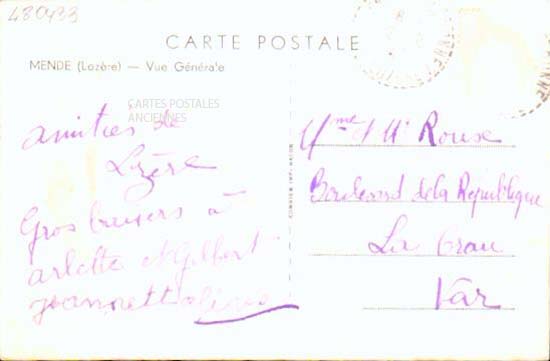 480433
CARTE POSTALE
MENDE (Lozère) — Vue Générale
CARTES POSTALES
ANCIENNES
amitiés de
Lozère
Gros baisers à
arlette et Gilbert
Jeannett
Mme & Mr Rouse
Boulevard de la République
La Crau
Var